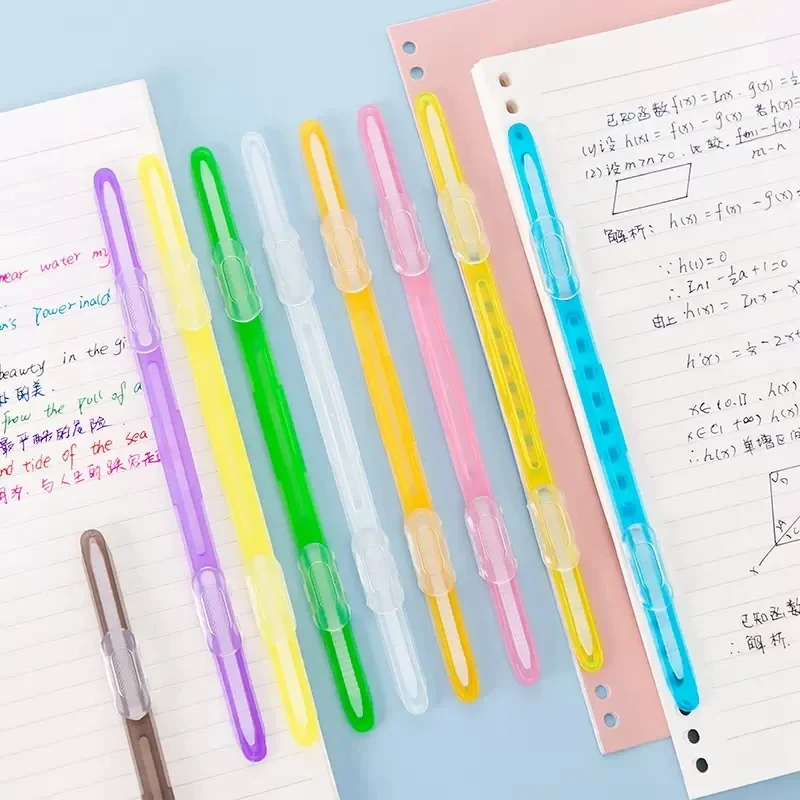 near water my
n's Powerinald
beauty in the gi
处的美.
from the pull of a
最平静的危险.
nd tide of the sea
已知函数f(x)=lnx. g(x)=½
(1)设 h(x)=f(x)-g(x) 若h(x)=
(2)设m>n>0. 比较. f(m)-f(n)/m-n
解析: h(x)=f(x)-g(x)=
∵h(1)=0
∴ ln1-½a+1=0
由上 h(x)=lnx-x
h'(x)=1/x-2x+
x∈(0.1). h(x)
x∈(1 +∞) h(x)
∴h(x)单增区间
D
A
C
x
已知函数
∴解析.